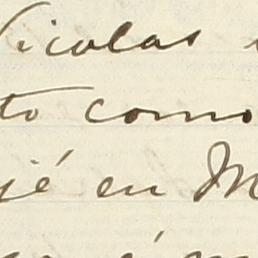 Nicolas
to como
jé en M